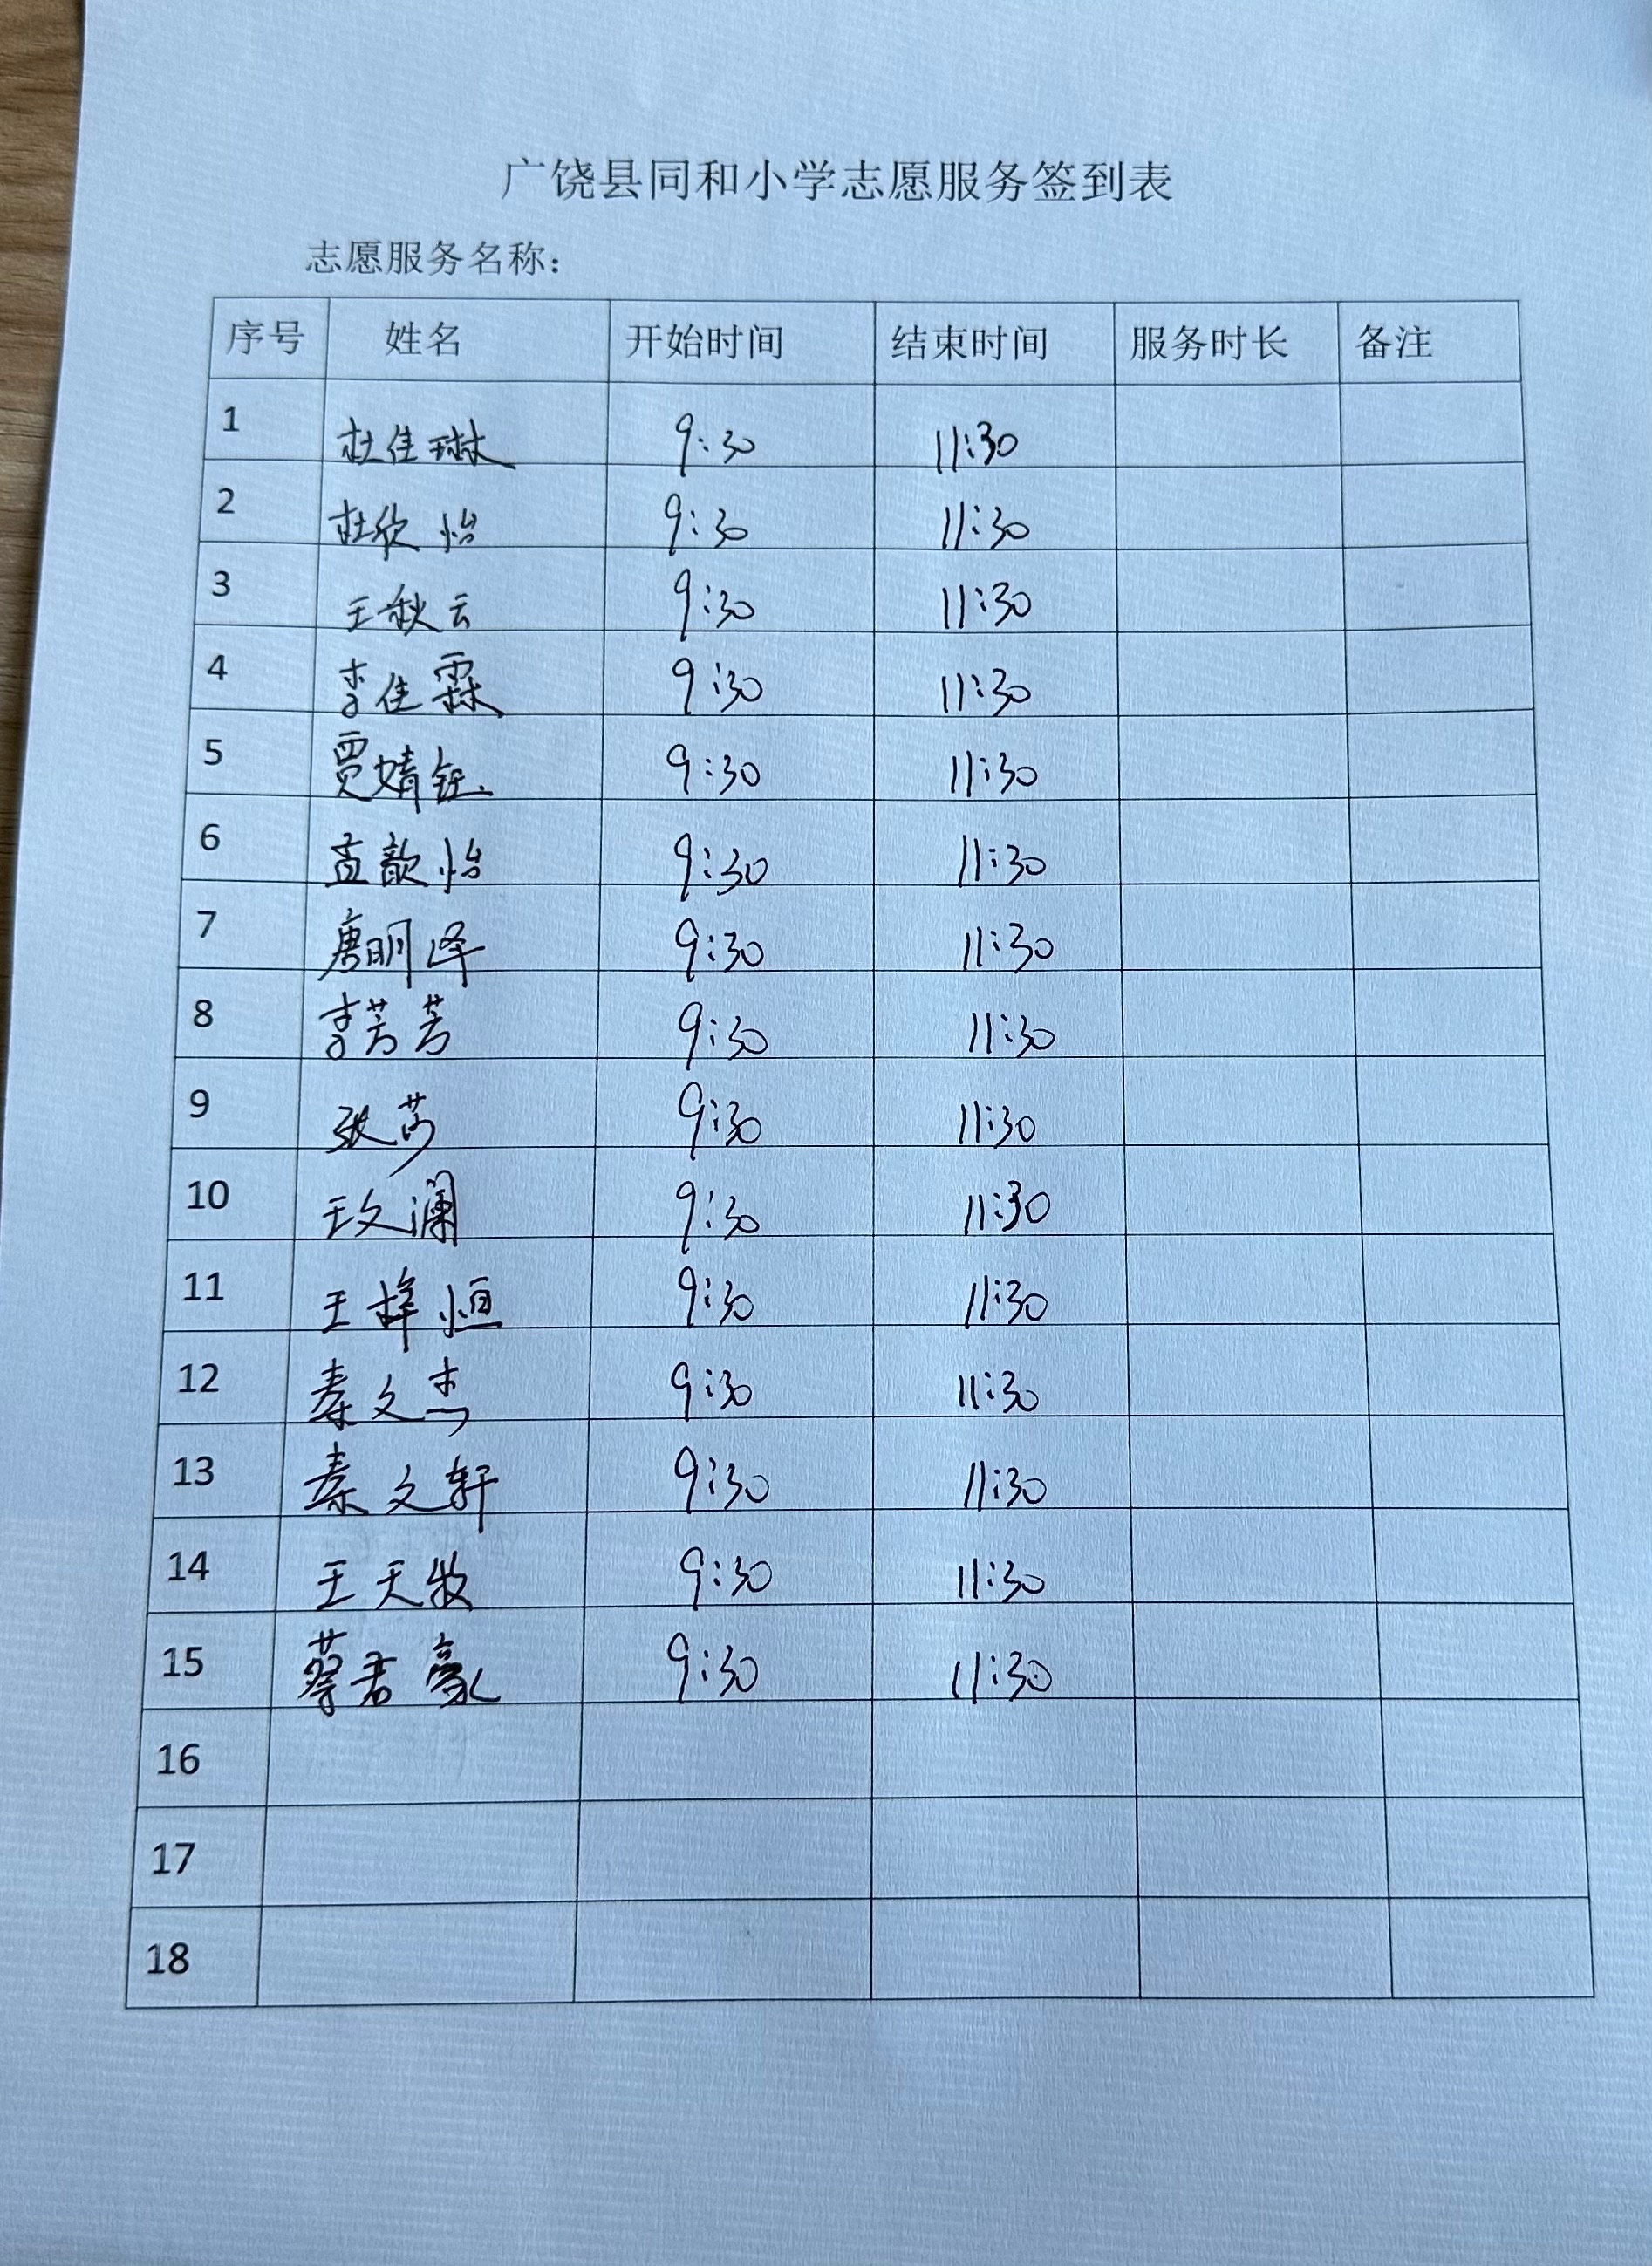 广饶县同和小学志愿服务签到表
志愿服务名称：
序号 姓名 开始时间 结束时间 服务时长 备注
1 杜佳琳 9:30 11:30
2 杜欣怡 9:30 11:30
3 王秋云 9:30 11:30
4 李佳霖 9:30 11:30
5 贾婧钰 9:30 11:30
6 孟歆怡 9:30 11:30
7 唐明泽 9:30 11:30
8 李芳芳 9:30 11:30
9 张 9:30 11:30
10 王文澜 9:30 11:30
11 王梓恒 9:30 11:30
12 秦文杰 9:30 11:30
13 秦文轩 9:30 11:30
14 王天牧 9:30 11:30
15 蔡君豪 9:30 11:30
16
17
18